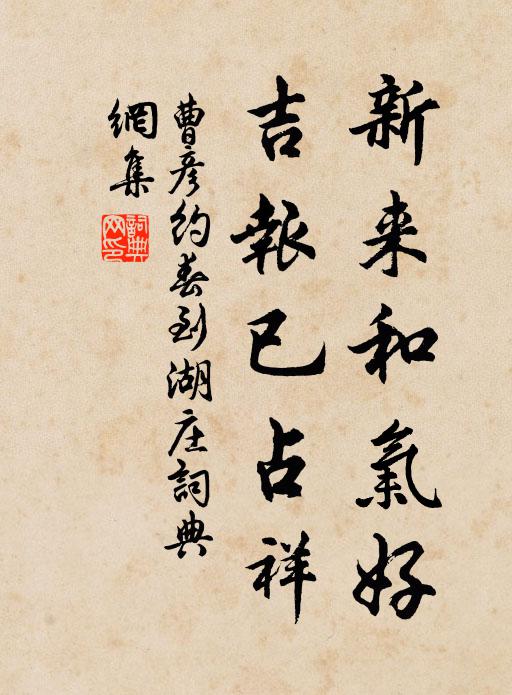 新来和氣好
吉報已占祥
曹彦約春到湖庄詞典
網集
詞典
网印